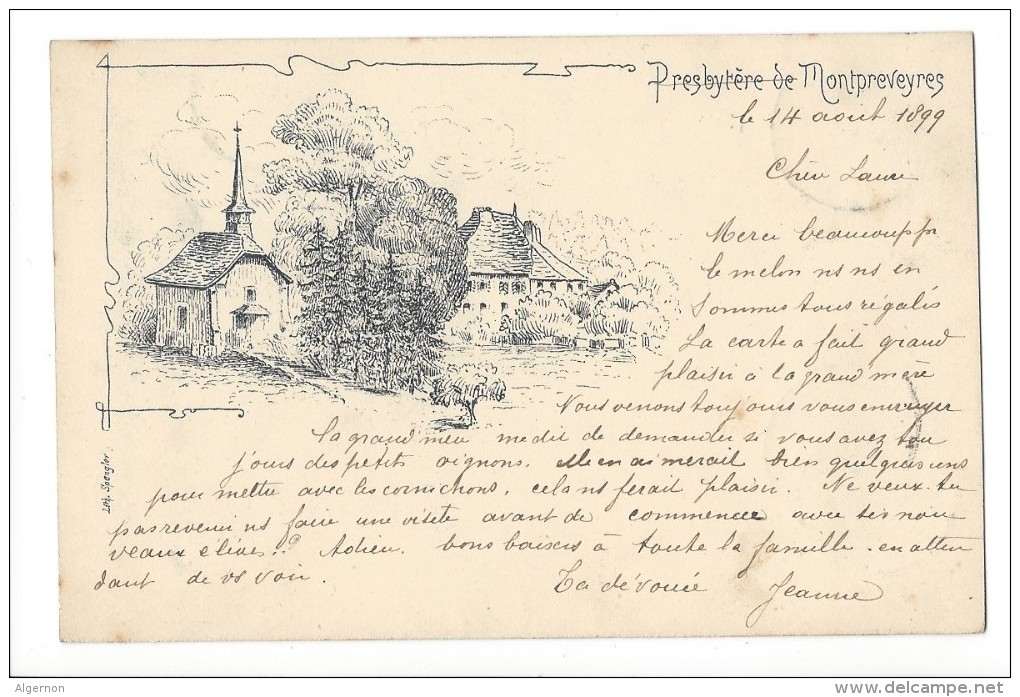 Presbytère de Montpreveyres
le 14 aout 1899
Chère Laure
Merci beaucoup pr
le melon ns ns en
sommes tous régalés
La carte a fait grand
plaisir à la grand mère
Nous venons toujours vous ennuyer
la grand mère me dit de demander si vous avez tou
jours des petits oignons. Elle en aimerait bien quelques uns
pour mettre avec les cornichons, cela ns ferait plaisir. Ne veux-tu
pas revenir ns faire une visite avant de commencer avec tes nou
veaux élèves?? Adieu. bons baisers à toute la famille. en atten
dant de vs voir. Ta dévouée Jeanne
Lith. Spengler.
Algernon
www.delcampe.net